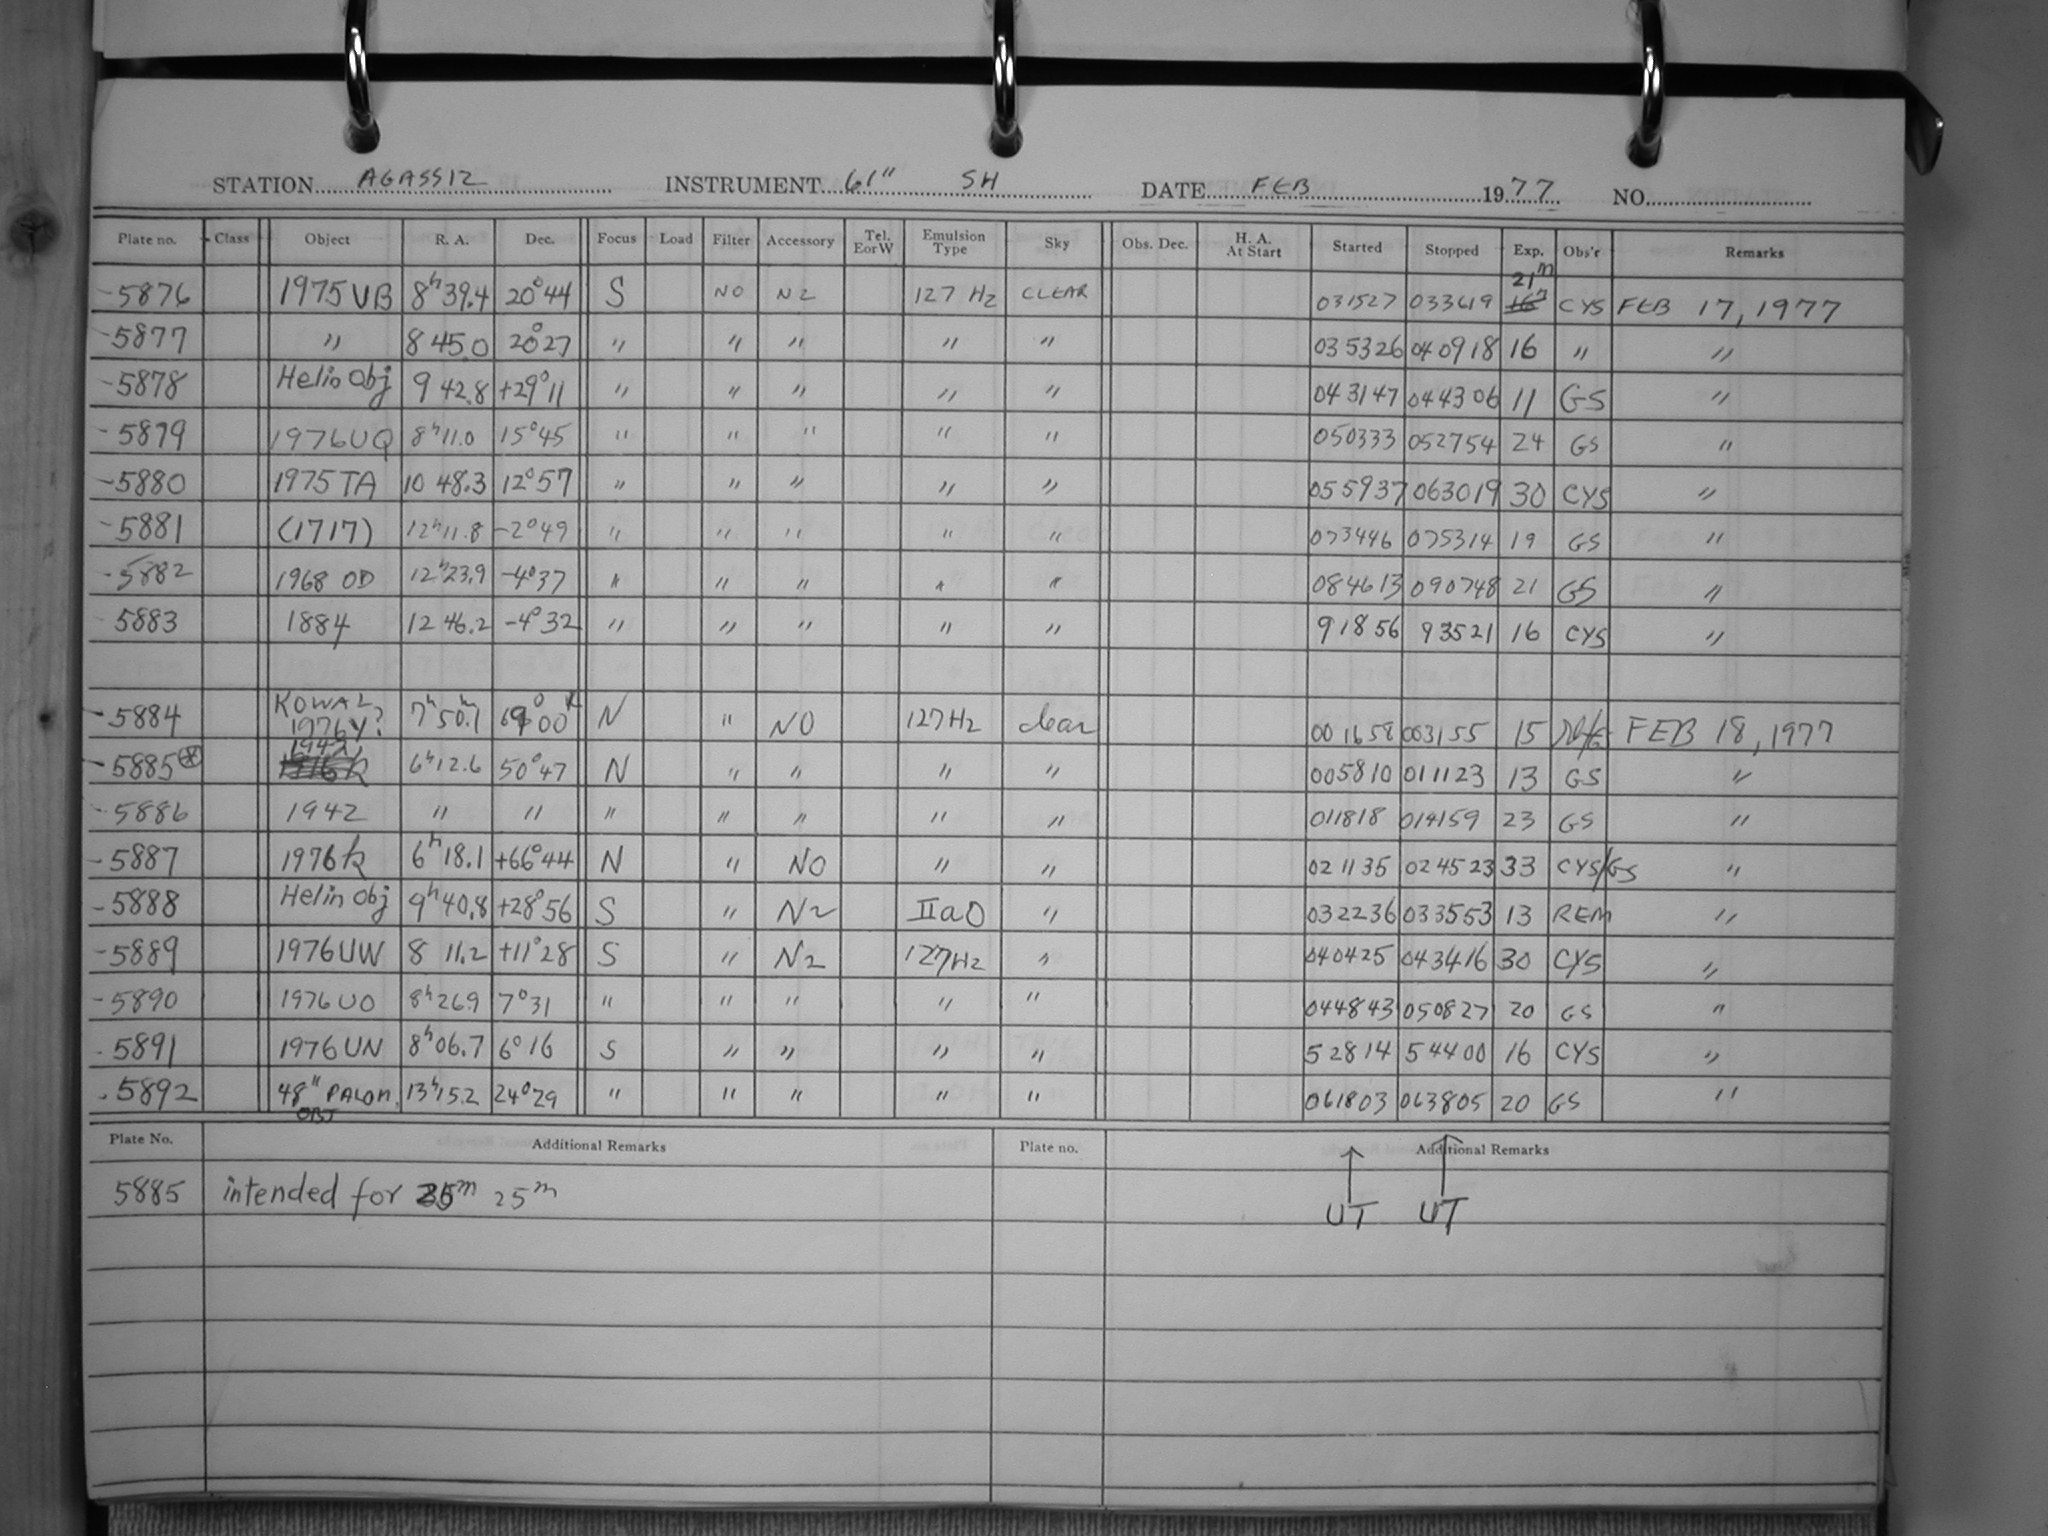 STATION AGASSIZ INSTRUMENT 61" SH DATE FEB 1977 NO.
Plate no. Class Object R. A. Dec. Focus Load Filter Accessory Tel. E or W Emulsion Type Sky Obs. Dec. H. A. At Start Started Stopped Exp. Obs'r Remarks
5876 1975 UB 8h 39.4 20°44 S NO N2 127 Hz CLEAR 031527 033619 21m CYS FEB 17, 1977
5877 " 8 45.0 20°27 " " " " " 035326 040918 16 " "
5878 Helin Obj 9 42.8 +29°11 " " " " " 043147 044306 11 GS "
5879 1976 UQ 8h 11.0 15°45 " " " " " 050333 052754 24 GS "
5880 1975 TA 10 48.3 12°57 " " " " " 055937 063019 30 CYS "
5881 (1717) 12h 11.8 -2°49 " " " " " 073446 075314 19 GS "
5882 1968 OD 12h 23.9 -4°37 " " " " " 084613 090748 21 GS "
5883 1884 12 46.2 -4°32 " " " " " 91856 93521 16 CYS "
5884 KOWAL 1976Y? 7h 50.m1 N " NO 127Hz clear 001658 003155 15 FEB 18, 1977
5885* 1942 6h 12.6 50°47 N " " " " 005810 011123 13 GS "
5886 1942 " " " " " " " 011818 014159 23 GS "
5887 1976k 6h 18.1 +66°44 N " NO " " 021135 024523 33 CYS/GS "
5888 Helin Obj 9h 40.8 +28°56 S " N2 IIaO " 032236 033553 13 REM "
5889 1976 UW 8 11.2 +11°28 S " N2 127Hz " 040425 043416 30 CYS "
5890 1976 UO 8h 26.9 7°31 " " " " " 044843 050827 20 GS "
5891 1976 UN 8h 06.7 6°16 S " " " " 52814 54400 16 CYS "
5892 48" PALOM. OBJ 13h 15.2 24°29 " " " " " 061803 063805 20 GS "
Plate No. Additional Remarks Plate no. Additional Remarks
5885 intended for 25m
UT UT